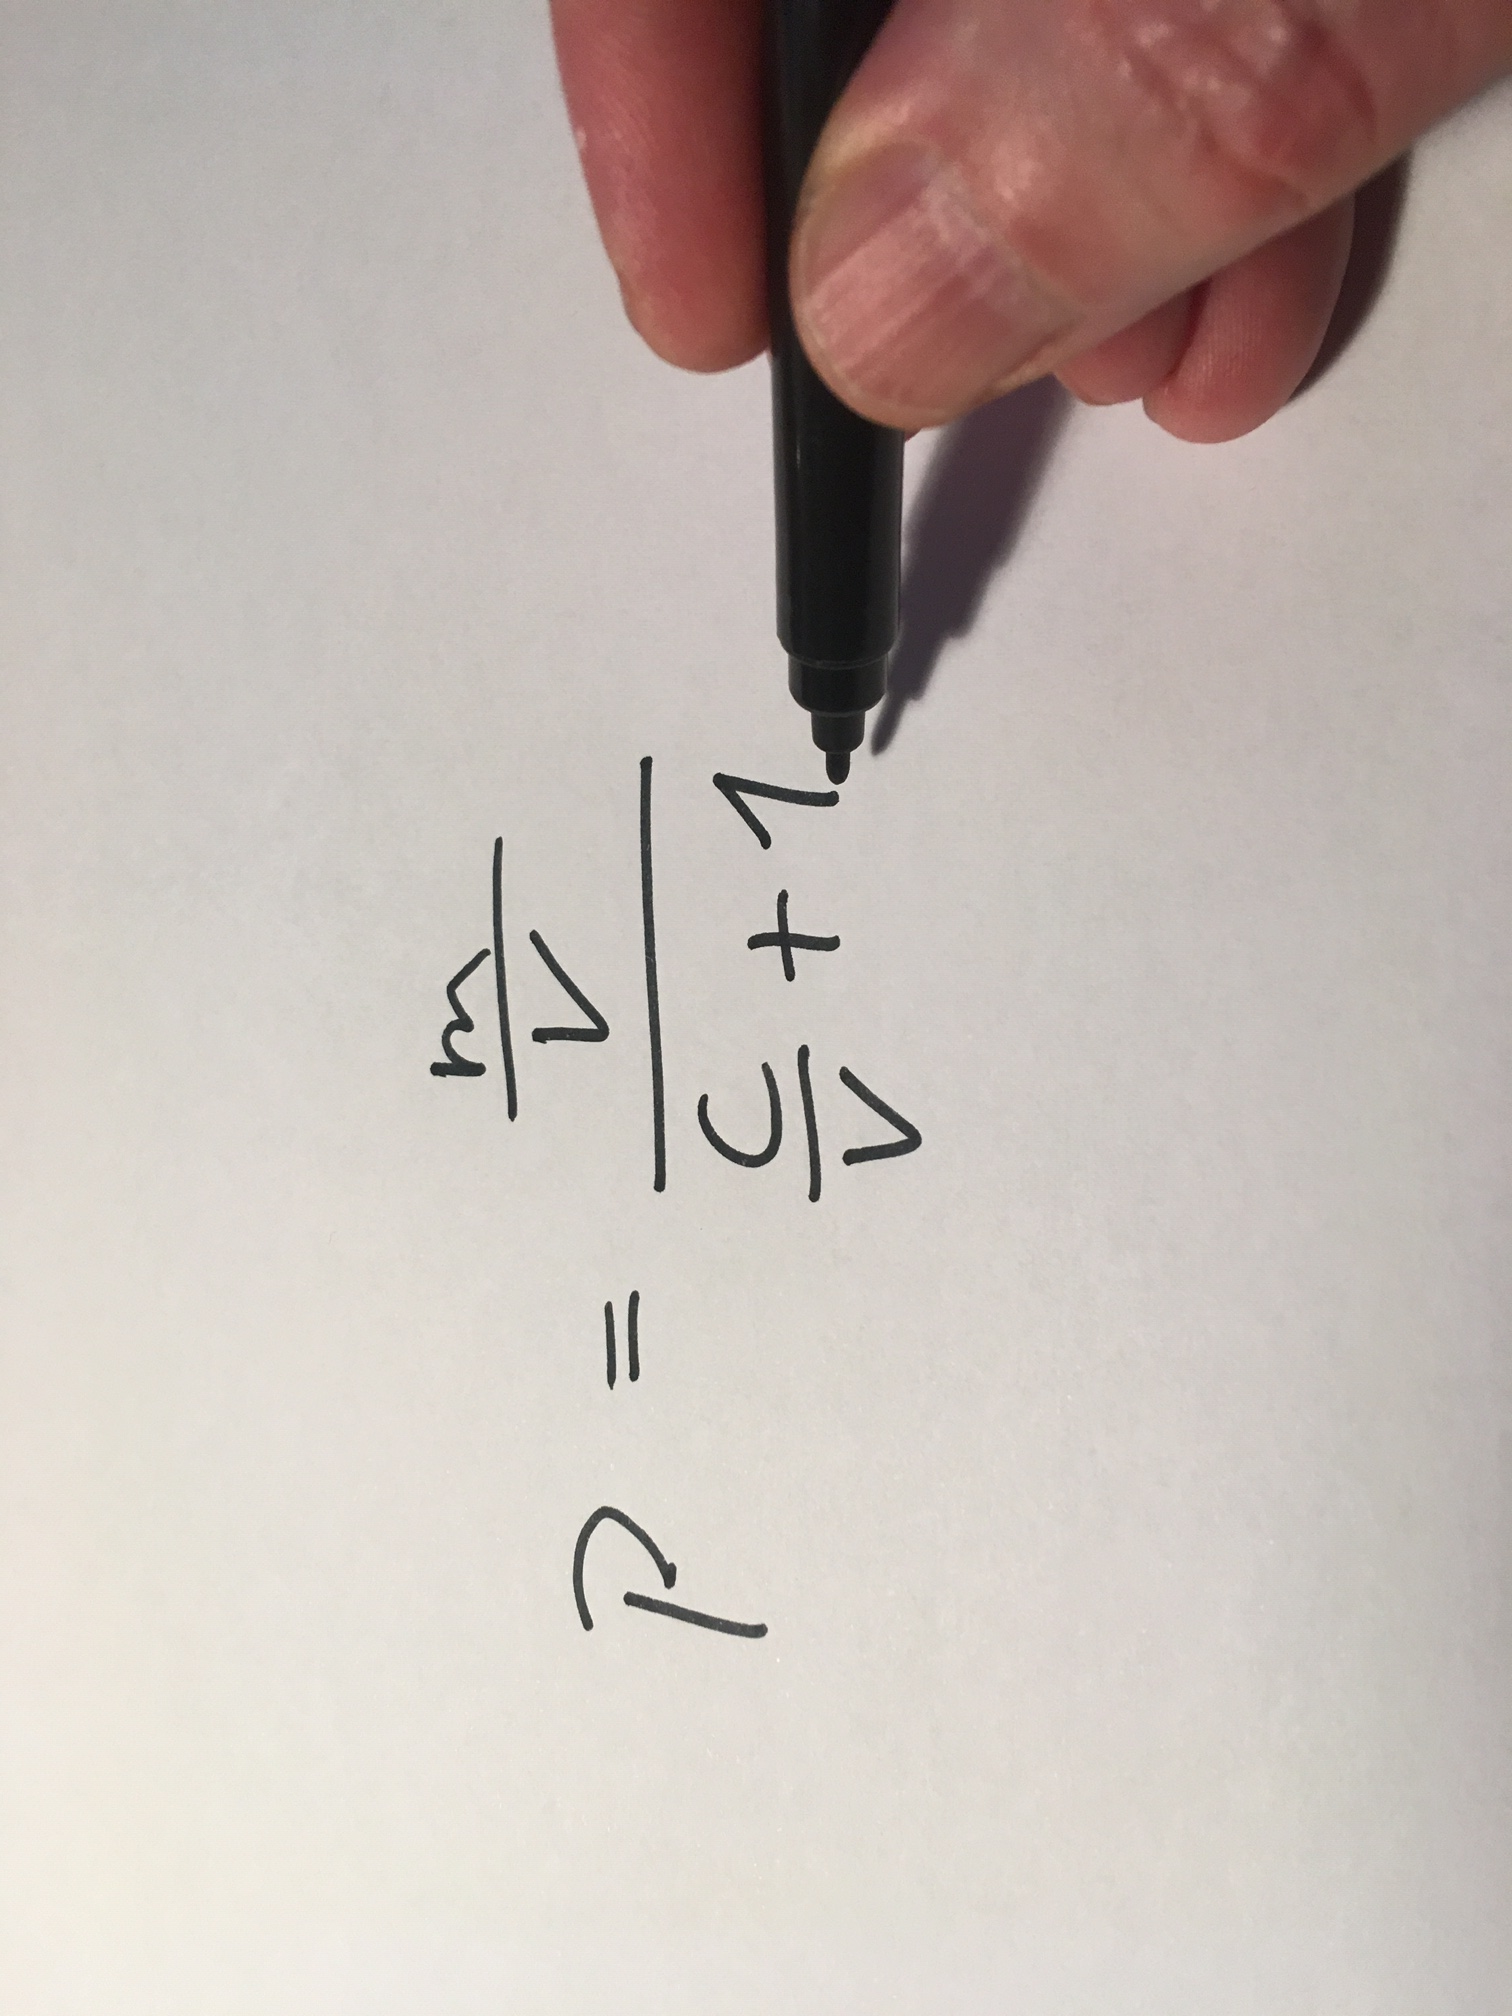 P = (m/v) / (c/v + 1)